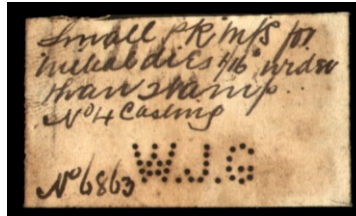 Small PR M/S for
Metal dies 1/16" wider
than stamp.
No 4 Casting
No 6863 W.J.G